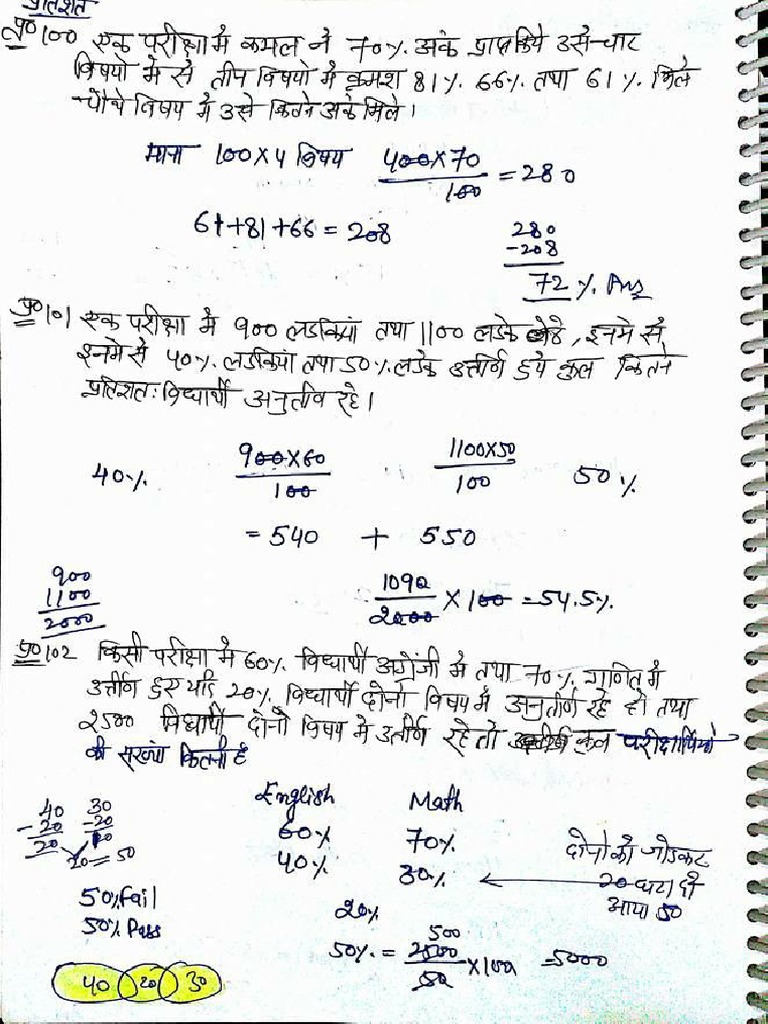 प्रतिशत
प्र० 100 एक परीक्षा में कमल ने 70% अंक प्राप्त किये उसे चार
विषयो में से तीन विषयो में क्रमश 81%. 66%. तथा 61%. मिले
चौथे विषय में उसे कितने अंक मिले।
माना 100×4 विषय 400×70/100 = 280
61+81+66 = 208
280
-208
72 %. Ans
प्र० 101 एक परीक्षा में 900 लडकियां तथा 1100 लडके बैठे, इनमे से
इनमे से 40%. लडकियां तथा 50%. लडके उत्तीर्ण हुये कुल कितने
प्रतिशत: विद्यार्थी अनुतीर्ण रहे।
40%. 900×60/100 1100×50/100 50%
= 540 + 550
900
1100
2000
1090/2000 × 100 = 54.5%
प्र० 102 किसी परीक्षा में 60%. विद्यार्थी अग्रेंजी में तथा 70%. गणित में
उत्तीर्ण हुए यदि 20%. विद्यार्थी दोनो विषय में अनुतीर्ण रहे हो तथा
2500 विद्यार्थी दोनो विषय में उतीर्ण रहे तो कुल परीक्षार्थियो
की सख्या कितनी है
English Math
60% 70%
40% 30%
40 30
-20 -20
20 10
20 = 50
दोनो को जोडकर
20 घटा दी
आया 50
50% Fail
50% Pass
20%
50% = 2500/50 × 100 = 5000
500
40 20 30